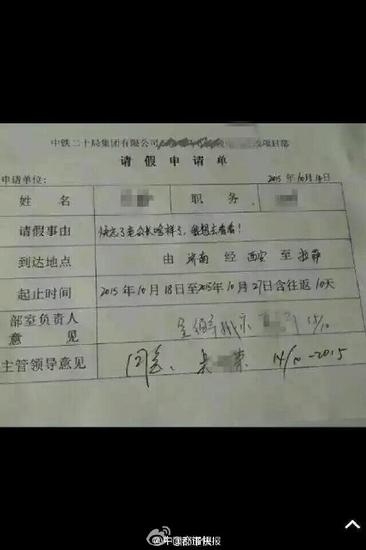 中铁二十局集团有限公司 项目部
请 假 申 请 单
申请单位: 2015 年 10 月 14 日
姓 名 职 务
请假事由 快忘了老公长啥样了,我想去看看!
到达地点 由 济南 经 西安 至
起止时间 2015 年 10 月 18 日至2015年 10 月 27 日含往返 10天
部室负责人
意 见 15/10
主管领导意见 同意、 14/10-2015
@中国都市快报